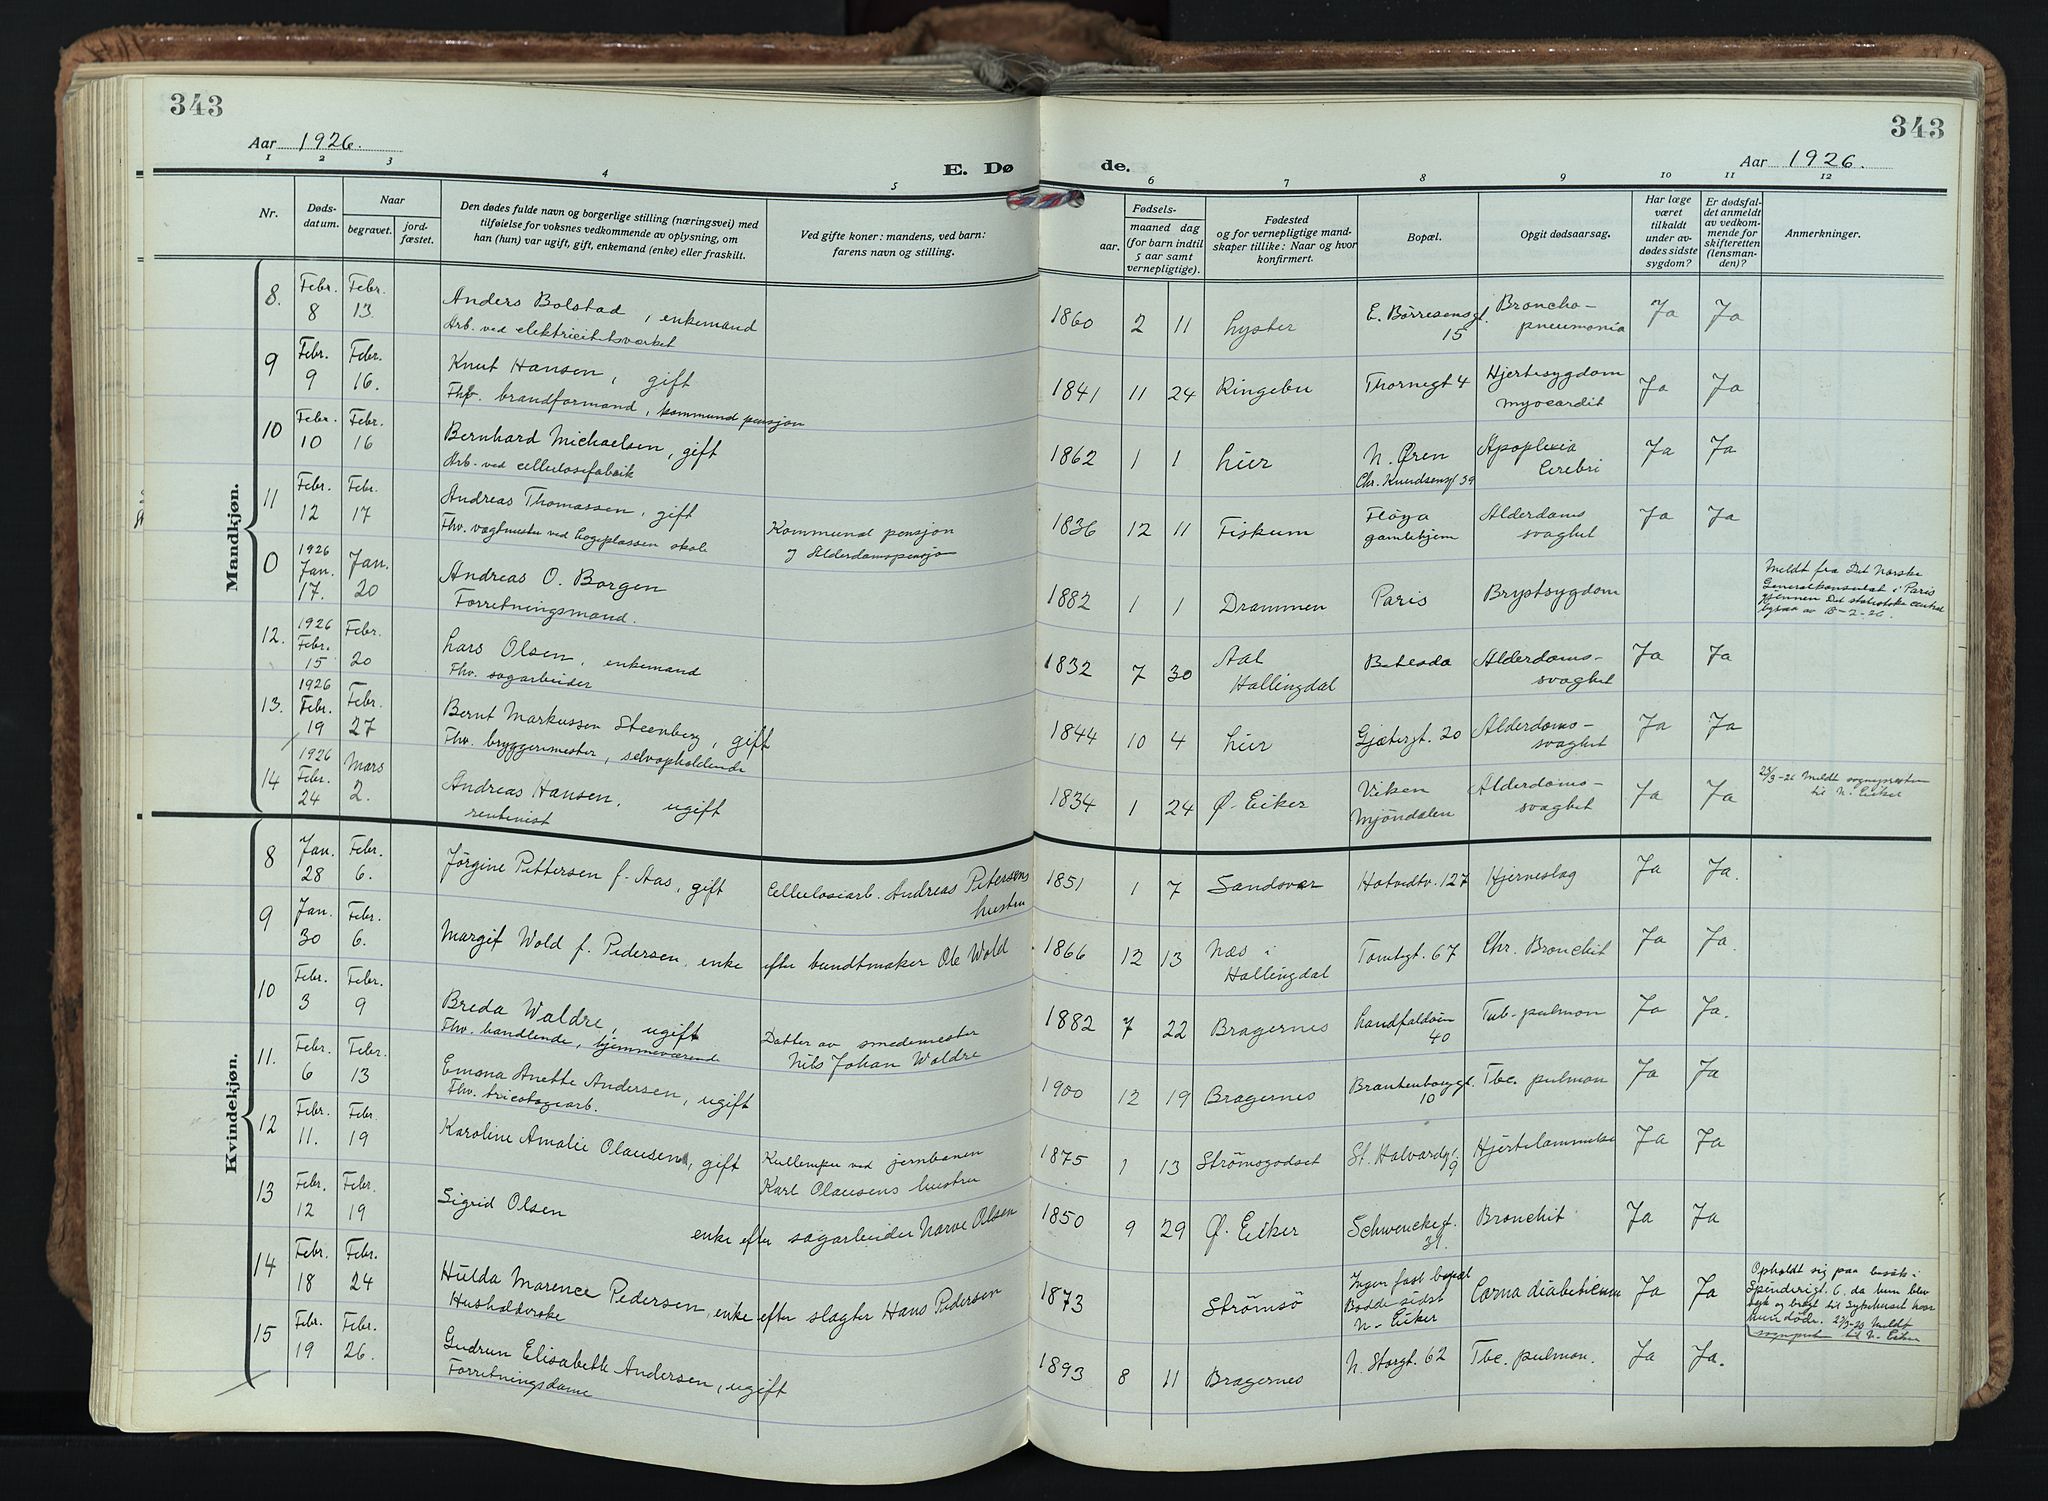 343
343
Aar 1926.
E. Dø de.
Aar 1926.
1 2 3 4 5 6 7 8 9 10 11 12
Nr.
Døds-
datum.
Naar
begravet.
jord-
fæstet.
Den dødes fulde navn og borgerlige stilling (næringsvei) med
tilføielse for voksnes vedkommende av oplysning, om
han (hun) var ugift, gift, enkemand (enke) eller fraskilt.
Ved gifte koner: mandens, ved barn:
farens navn og stilling.
Fødsels-
aar.
maaned dag
(for barn indtil
5 aar samt
vernepligtige).
Fødested
og for vernepligtige mand-
skaper tillike: Naar og hvor
konfirmert.
Bopæl.
Opgit dødsaarsag.
Har læge
været
tilkaldt
under av-
dødes sidste
sygdom?
Er dødsfal-
det anmeldt
av vedkom-
mende for
skifteretten
(lensman-
den)?
Anmerkninger.
Mandkjøn.
8. Febr. 8 Febr. 13. Anders Bolstad, enkemand 1860 2 11 Lyster E. Børresensgt. 15 Broncho- Ja Ja
Arb. ved elektricitetsverket pneumonia
9 Febr. 9 Febr. 16. Knut Hansen, gift 1841 11 24 Ringebu Thornegt 4 Hjertesygdom Ja Ja
Fhv. brandformand, kommunal pensjon myocardit
10 Febr. 10 Febr. 16 Bernhard Michaelsen, gift 1862 1 1 Lier N. Øren Apoplexia Ja Ja
Arb. ved cellulosefabrik Chr. Knudsensgt 39 Cerebri
11 Febr. 12 Febr. 17 Andreas Thomassen, gift Kommunal pensjon 1836 12 11 Fiskum Fløya Alderdoms Ja Ja
Fhv. vagtmester ved skole og Alderdomspensjon gamlehjem svaghet
0 1926 Jan. 17. Jan. 20 Andreas O. Borgen 1882 1 1 Drammen Paris Brystsygdom Meldt fra Det Norske
Forretningsmand. Generalkonsulat i Paris
gjennem Det statistiske central
byraa av
12. 1926 Febr. 15 Febr. 20 Lars Olsen, enkemand 1832 7 30 Aal Betesda Alderdoms- Ja Ja
Fhv. sagarbeider Hallingdal svaghet
13. 1926 Febr. 19 Febr. 27 Bernt Markussen Steenberg, gift 1844 10 4 Lier Gjætergt. 20 Alderdoms- Ja Ja
Fhv. bryggermester, selvopholdende svaghet
14 1926 Febr. 24 Mars 2. Andreas Hansen, ugift 1834 1 24 Ø. Eiker Viken Alderdoms- Ja Ja meldt sognepresten
rentenist Mjöndalen svaghet til N. Eiker
Kvindekjøn.
8 Jan. 28 Febr. 6. Jörgine Pettersen f. Aas, gift Cellulosearb. Andreas Petersens 1851 1 7 Sandsvær Hotvedtv. 127 Hjerneslag Ja Ja.
hustru
9 Jan. 30 Febr. 6. Margit Wold f. Pedersen, enke efter buntmaker Ole Wold 1866 12 13 Næs i Tomtegt. 67 Chr. Bronchit Ja Ja.
Hallingdal
10 Febr. 3 Febr. 9 Breda Waldre, ugift Datter av smedemester 1882 7 22 Bragernes Landfaldöien Tub. pulmon Ja Ja.
Fhv. handlende, hjemmeværende Nils Johan Waldre 40
11. Febr. 6 Febr. 13 Emma Anette Andersen, ugift 1900 12 19 Bragernes Brantenborggt. Tbc. pulmon Ja Ja
Fhv. tricotagearb. 10
12 Febr. 11. Febr. 19 Karoline Amalie Olausen, gift ved jernbanen 1875 1 13 Strömsgodset St. Halvardgt. Hjertelammelse Ja Ja
Karl Olausens hustru 9
13 Febr. 12 Febr. 19 Sigrid Olsen 1850 9 29 Ø. Eiker Schwenckegt. Bronchit Ja Ja
enke efter sagarbeider Narve Olsen 31.
14 Febr. 18 Febr. 24 Hulda Marence Pedersen, enke efter slagter Hans Pedersen 1873 Strömsö Ingen fast bopæl Coma diabeticum Ja Ja Opholdt sig paa besök i
Husholderske Bodde sidst Spinderigt. 6. da hun blev
N. Eiker syk og bragt til sykehuset hvor
hun döde. meldt
sognepr. til N. Eiker
15 Febr. 19 Febr. 26. Gudrun Elisabeth Andersen, ugift 1893 8 11 Bragernes N. Storgt. 62 Tbc. pulmon. Ja Ja.
Forretningsdame